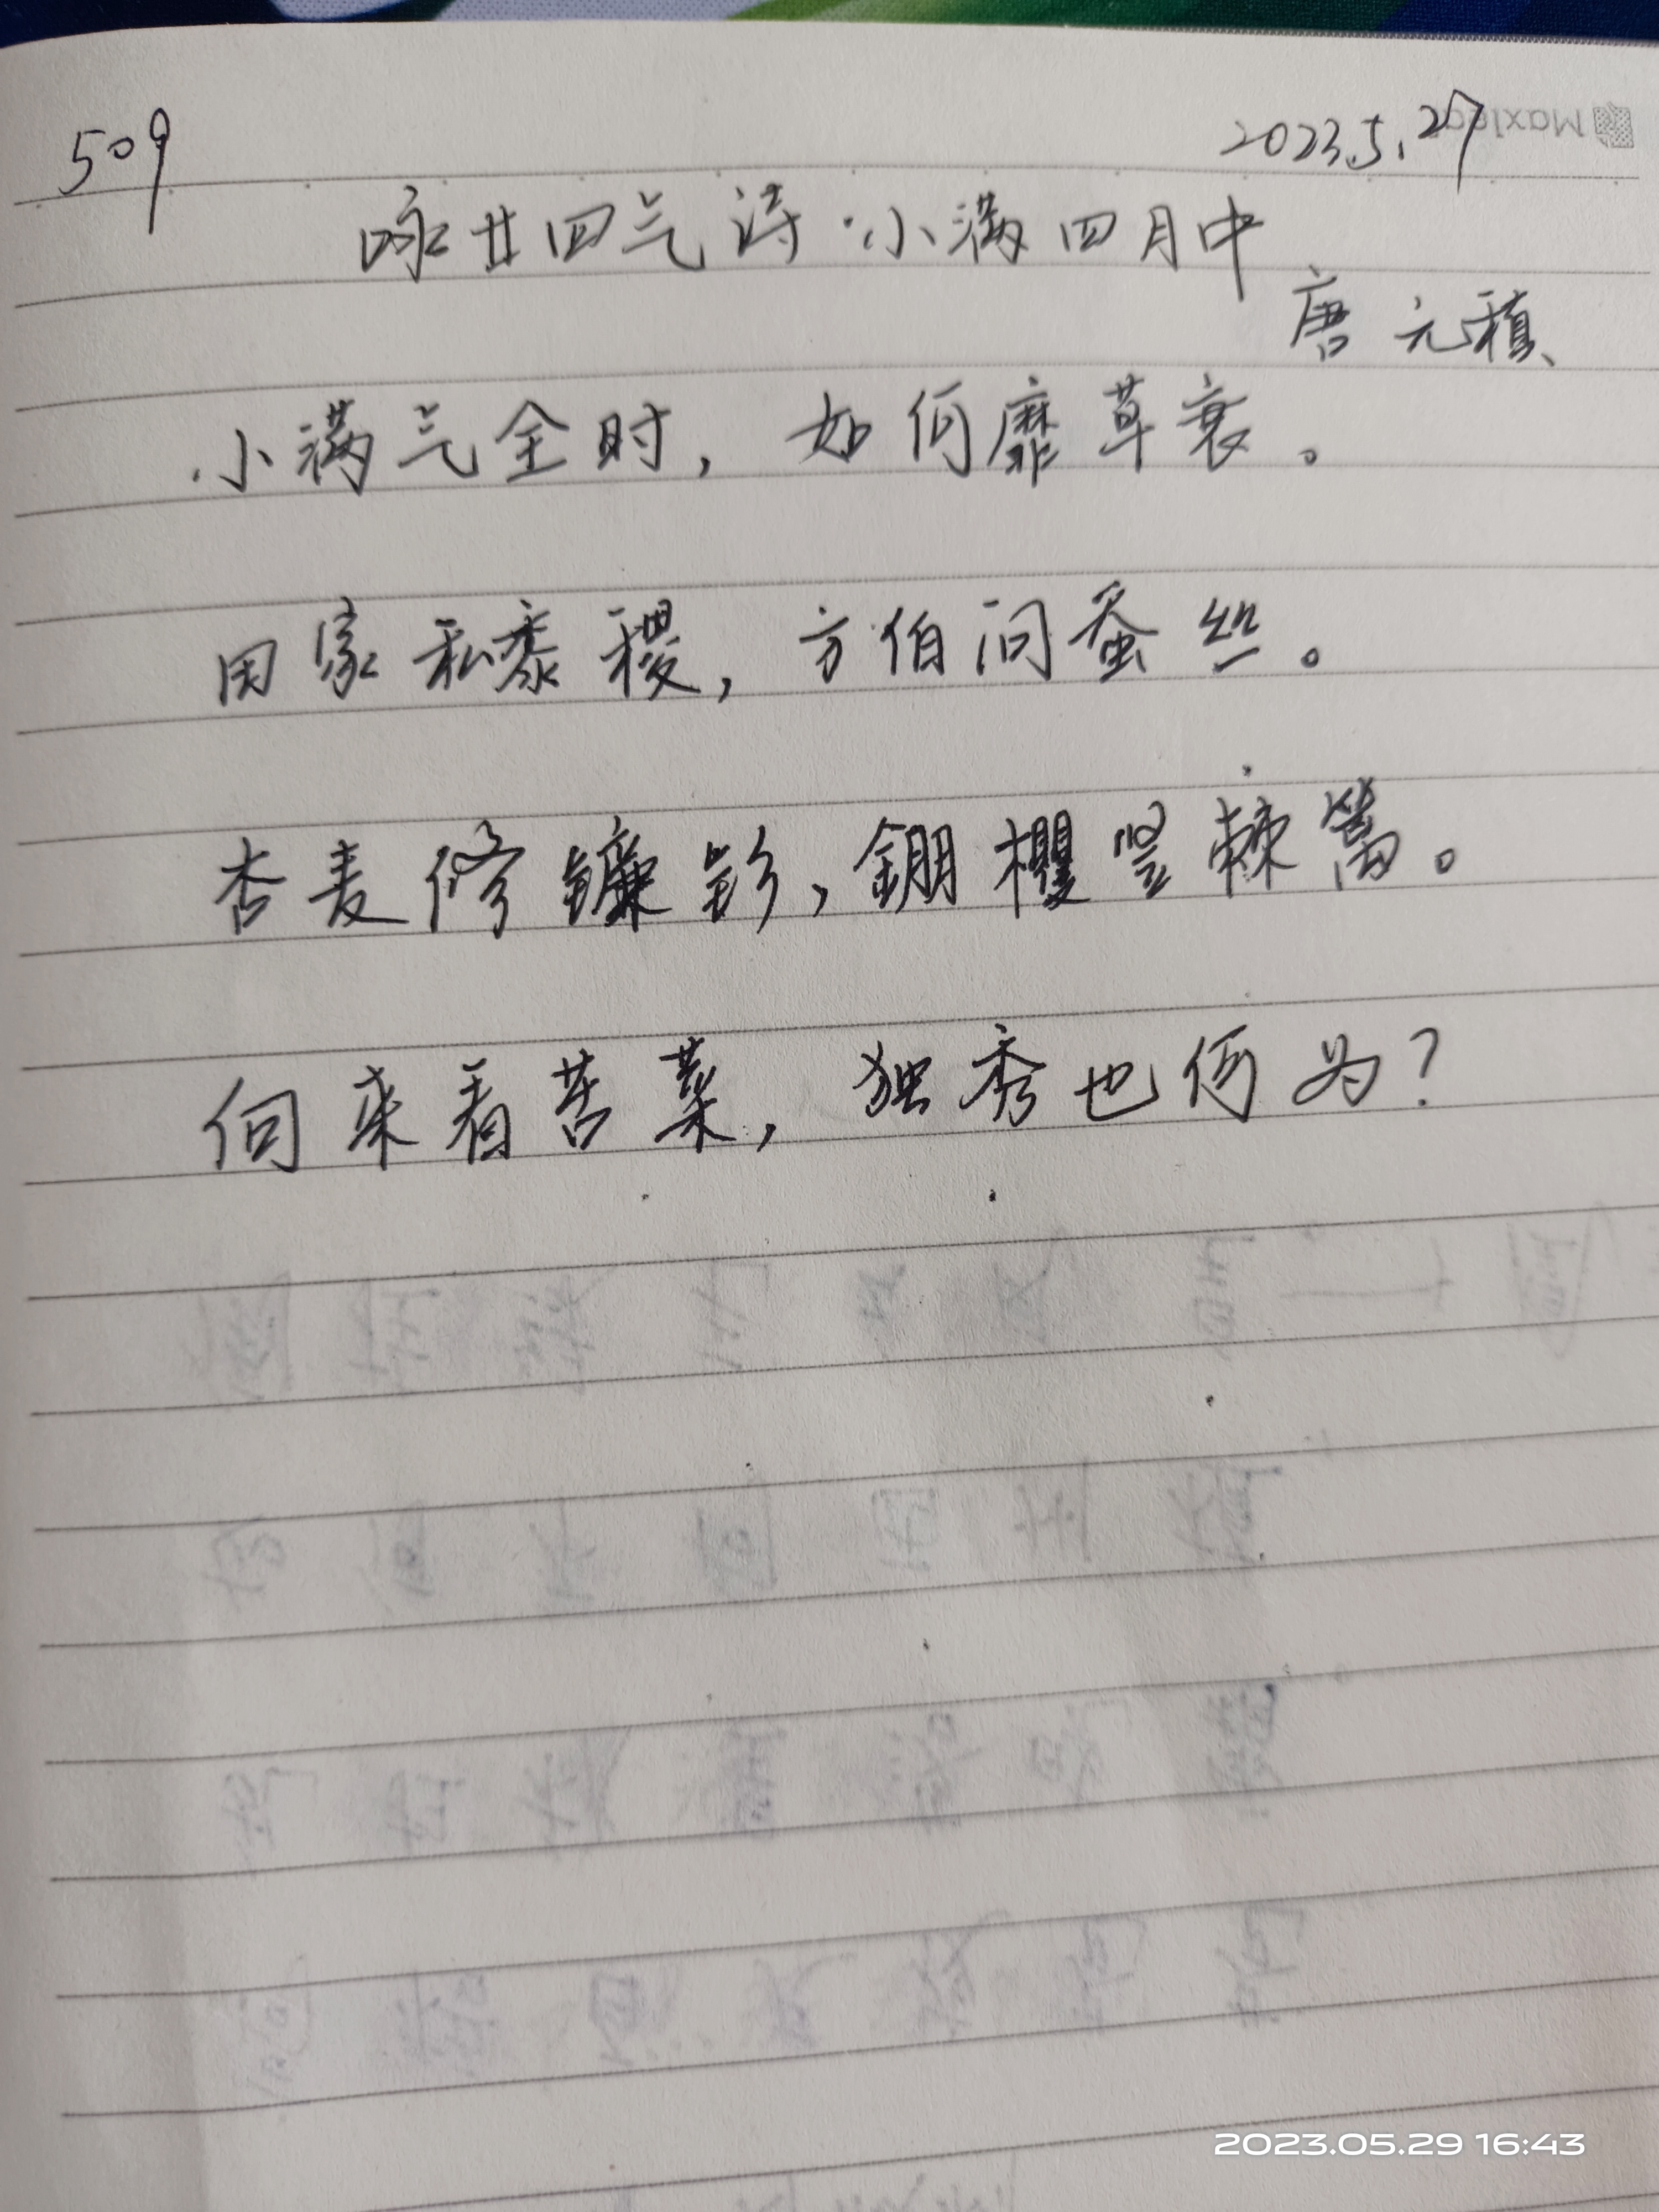 509
2023.5.27
咏廿四气诗·小满四月中
唐 元稹
小满气全时，如何靡草衰。
田家私黍稷，方伯问蚕丝。
杏麦修镰钐，锄櫻竖棘篱。
向来看苦菜，独秀也何为？
2023.05.29 16:43